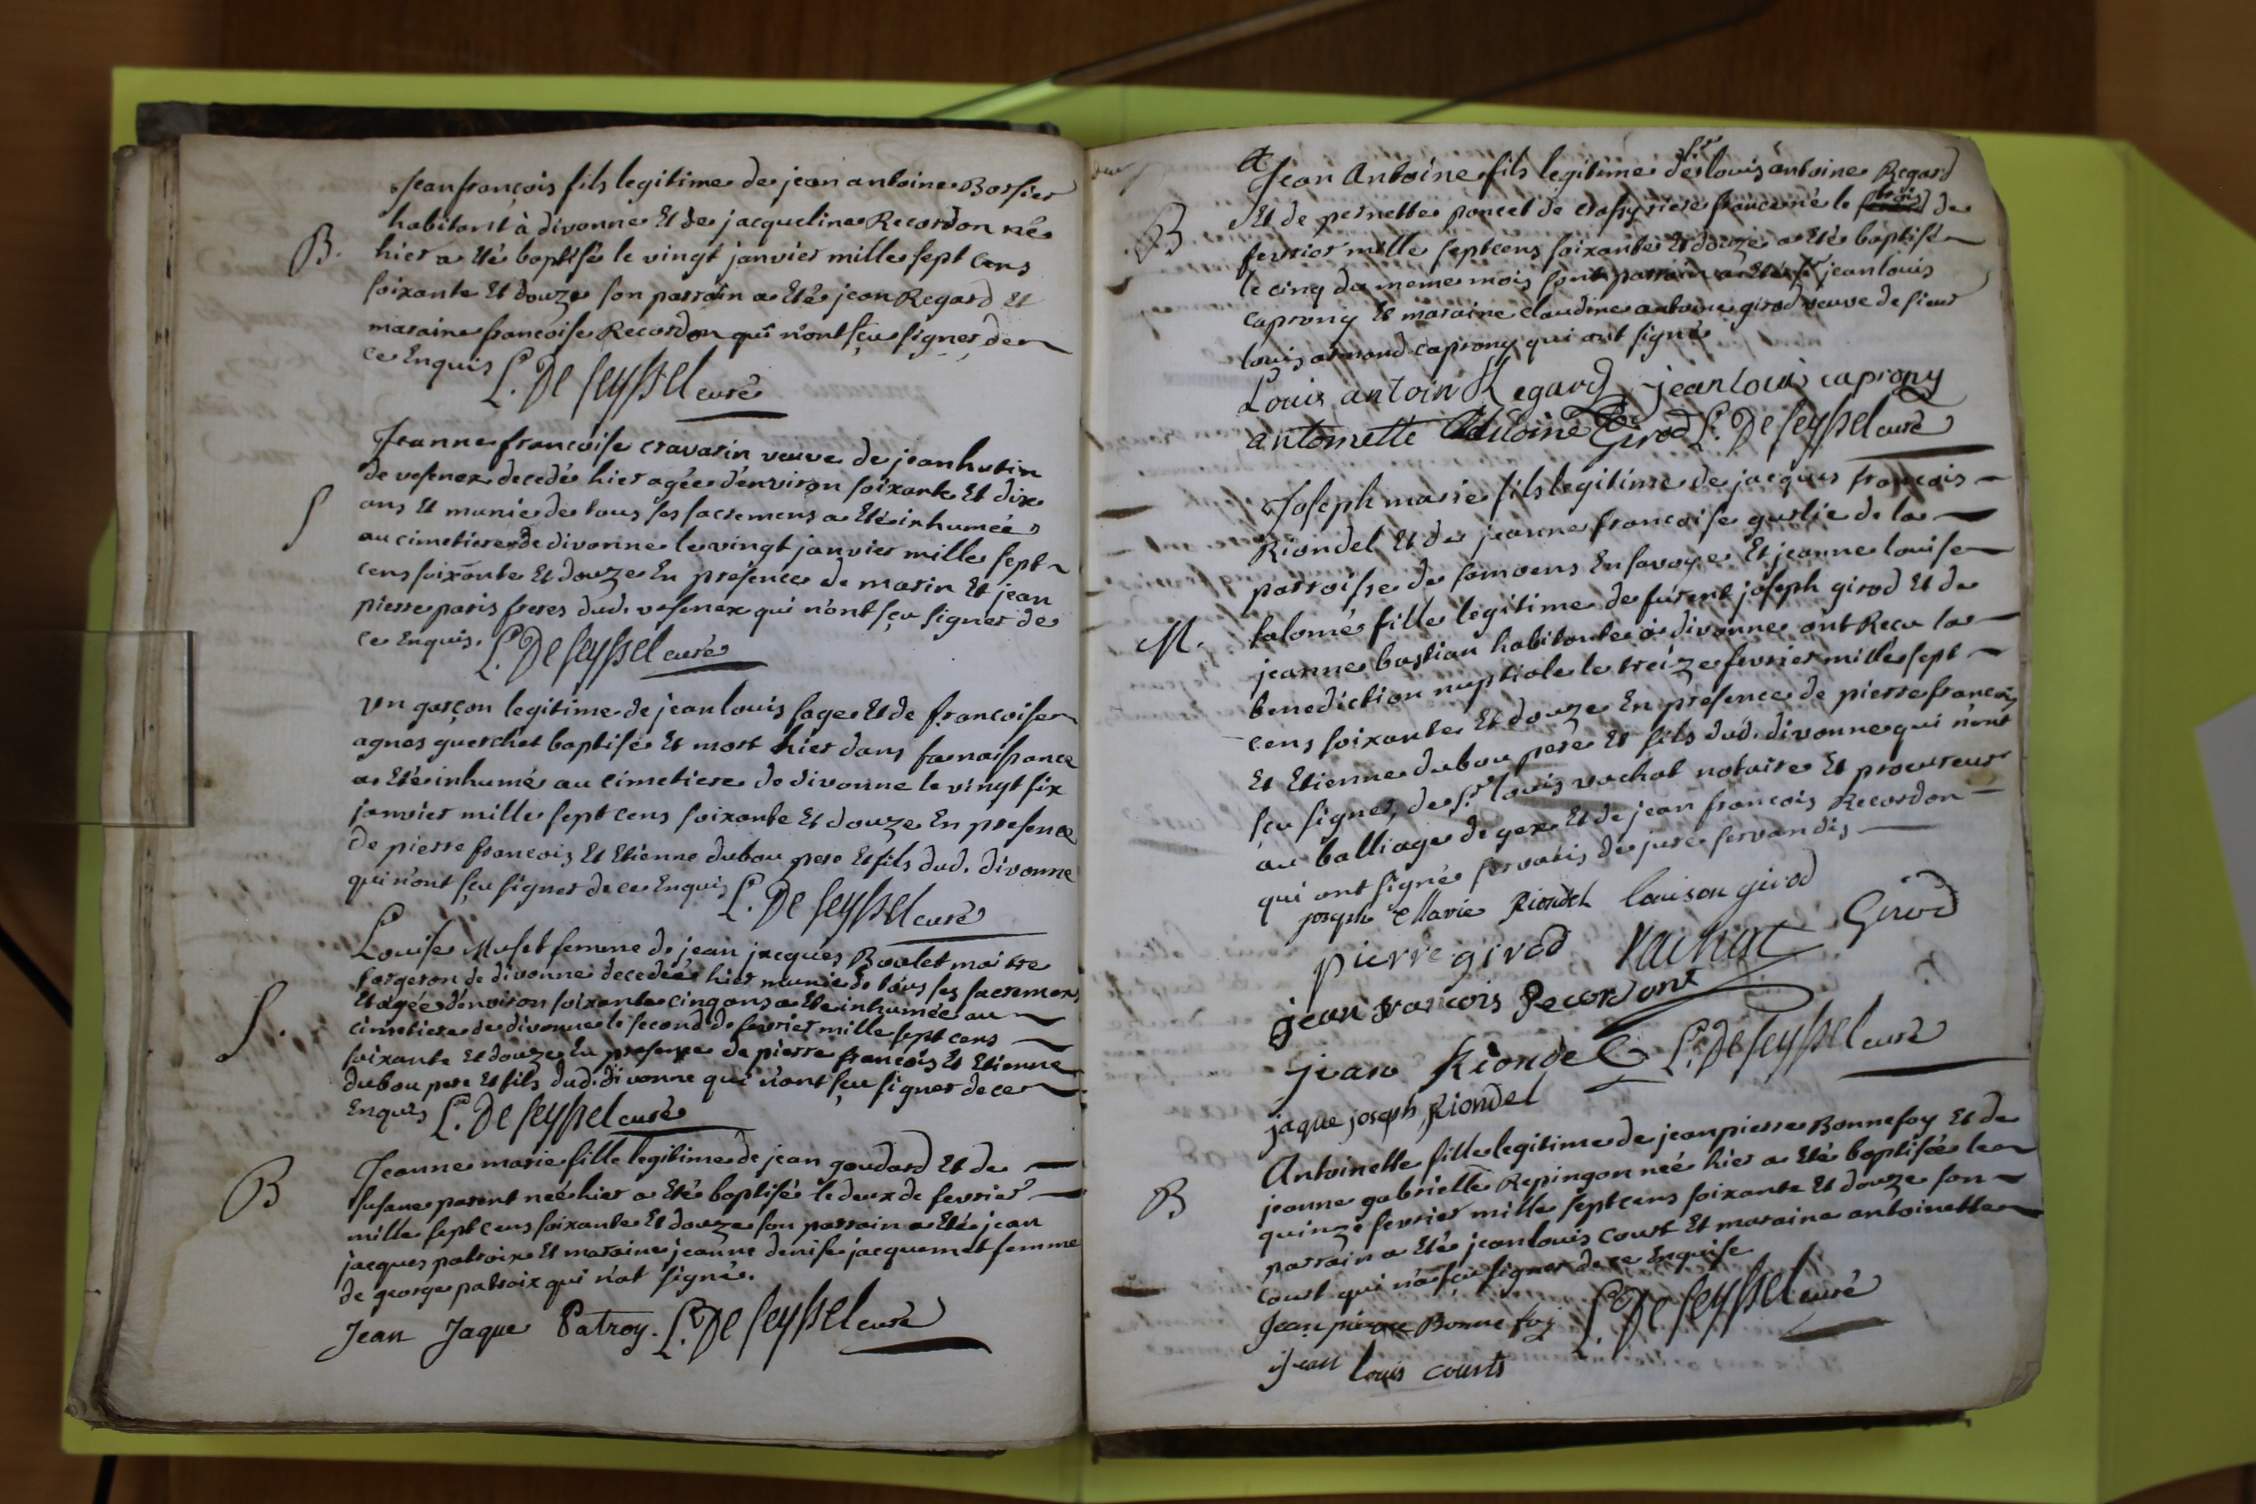 Jean françois fils legitime de jean antoine Borsier
habitant à divonne Et de jacqueline Recordon né
B. hier a Eté baptisé le vingt janvier mille sept cens
soixante Et douze son parrain a Eté jean Regard Et
maraine francoise Recordon qui n'ont sçu signer de
ce Enquis L. De Seyssel curé
Jeanne francoise cravarin veuve de jean hutin
de vesenex decedé hier agée d'environ soixante Et dix
S ans Et munie de tous ses sacremens a Eté inhumée
au cimetiere de divonne le vingt janvier mille sept
cens soixante Et douze En présence de marin Et jean
pierre paris freres dud. vesenex qui n'ont sçu signer de
ce Enquis. L. De Seyssel curé
un garçon legitime de jean louis sage Et de francoise
agnes guerchet baptisé Et mort hier dans sa naissance
a Eté inhumé au cimetiere de divonne le vingt six
janvier mille sept cens soixante Et douze En presence
de pierre francois Et Etienne dubou pere Et fils dud. divonne
qui n'ont sçu signer de ce Enquis L. De Seyssel curé
Louise Muset femme de jean jacques Boulet maitre
forgeron de divonne decedée hier munie de tous ses sacremens
Et agée d'environ soixante cinq ans a Eté inhumée au
S. cimetiere de divonne le second de fevrier mille sept cens
soixante Et douze En presence de pierre francois Et Etienne
dubou pere Et fils dud. divonne qui n'ont sçu signer de ce
Enquis L. De Seyssel curé
Jeanne marie fille legitime de jean goudard Et de
B susane parent neé hier a Eté baptisé le deux de fevrier
mille sept cens soixante Et douze son parrain a Eté jean
jacques patroix Et maraine jeanne denise jacquemet femme
de george patroix qui n'ot signé.
Jean Jaque Patroy. L. De Seyssel curé
Jean Antoine fils legitime de sr louis antoine Regard
Et de pernette poncet de crassy riere france né le trois de
B fevrier mille sept cens soixante Et douze a Eté baptisé
le cinq du meme mois son parrain a Eté sr jean louis
caprony Et maraine claudine antoine girod veuve de sieur
louis armand caprony qui ont signé
Louis antoin Regard jean louis caprony
antoinette Antoine Girod L. De Seyssel curé
Joseph marie fils legitime de jacques francois
Riondel Et de jeanne francoise gurlie de la
parroisse de samoens En savoye Et jeanne louise
M. salomé fille legitime de furent joseph girod Et de
jeanne bastian habitante à divonne ont Recu la
benediction nuptiale le treize fevrier mille sept
cens soixante Et douze En presence de pierre francois
Et Etienne dubou pere Et fils dud. divonne qui n'ont
sçu signer, de sr louis vachat notaire Et procureur
au balliage de gex Et de jean francois Recordon
qui ont signé servatis de jure servandis
joseph Marie Riondel louison girod
pierre girod Vachat Girod
jean francois Recordont
jean Riondel L. De Seyssel curé
jaque joseph Riondel
Antoinette fille legitime de jean pierre Bonnefoy Et de
jeanne gabrielle Repingon neé hier a Eté baptisée le
B quinze fevrier mille sept cens soixante Et douze son
parrain a Eté jean louis court Et maraine antoinette
court qui n'a sçu signer de ce Enquise
Jean pierre Bonne foy L. De Seyssel curé
jean louis courts